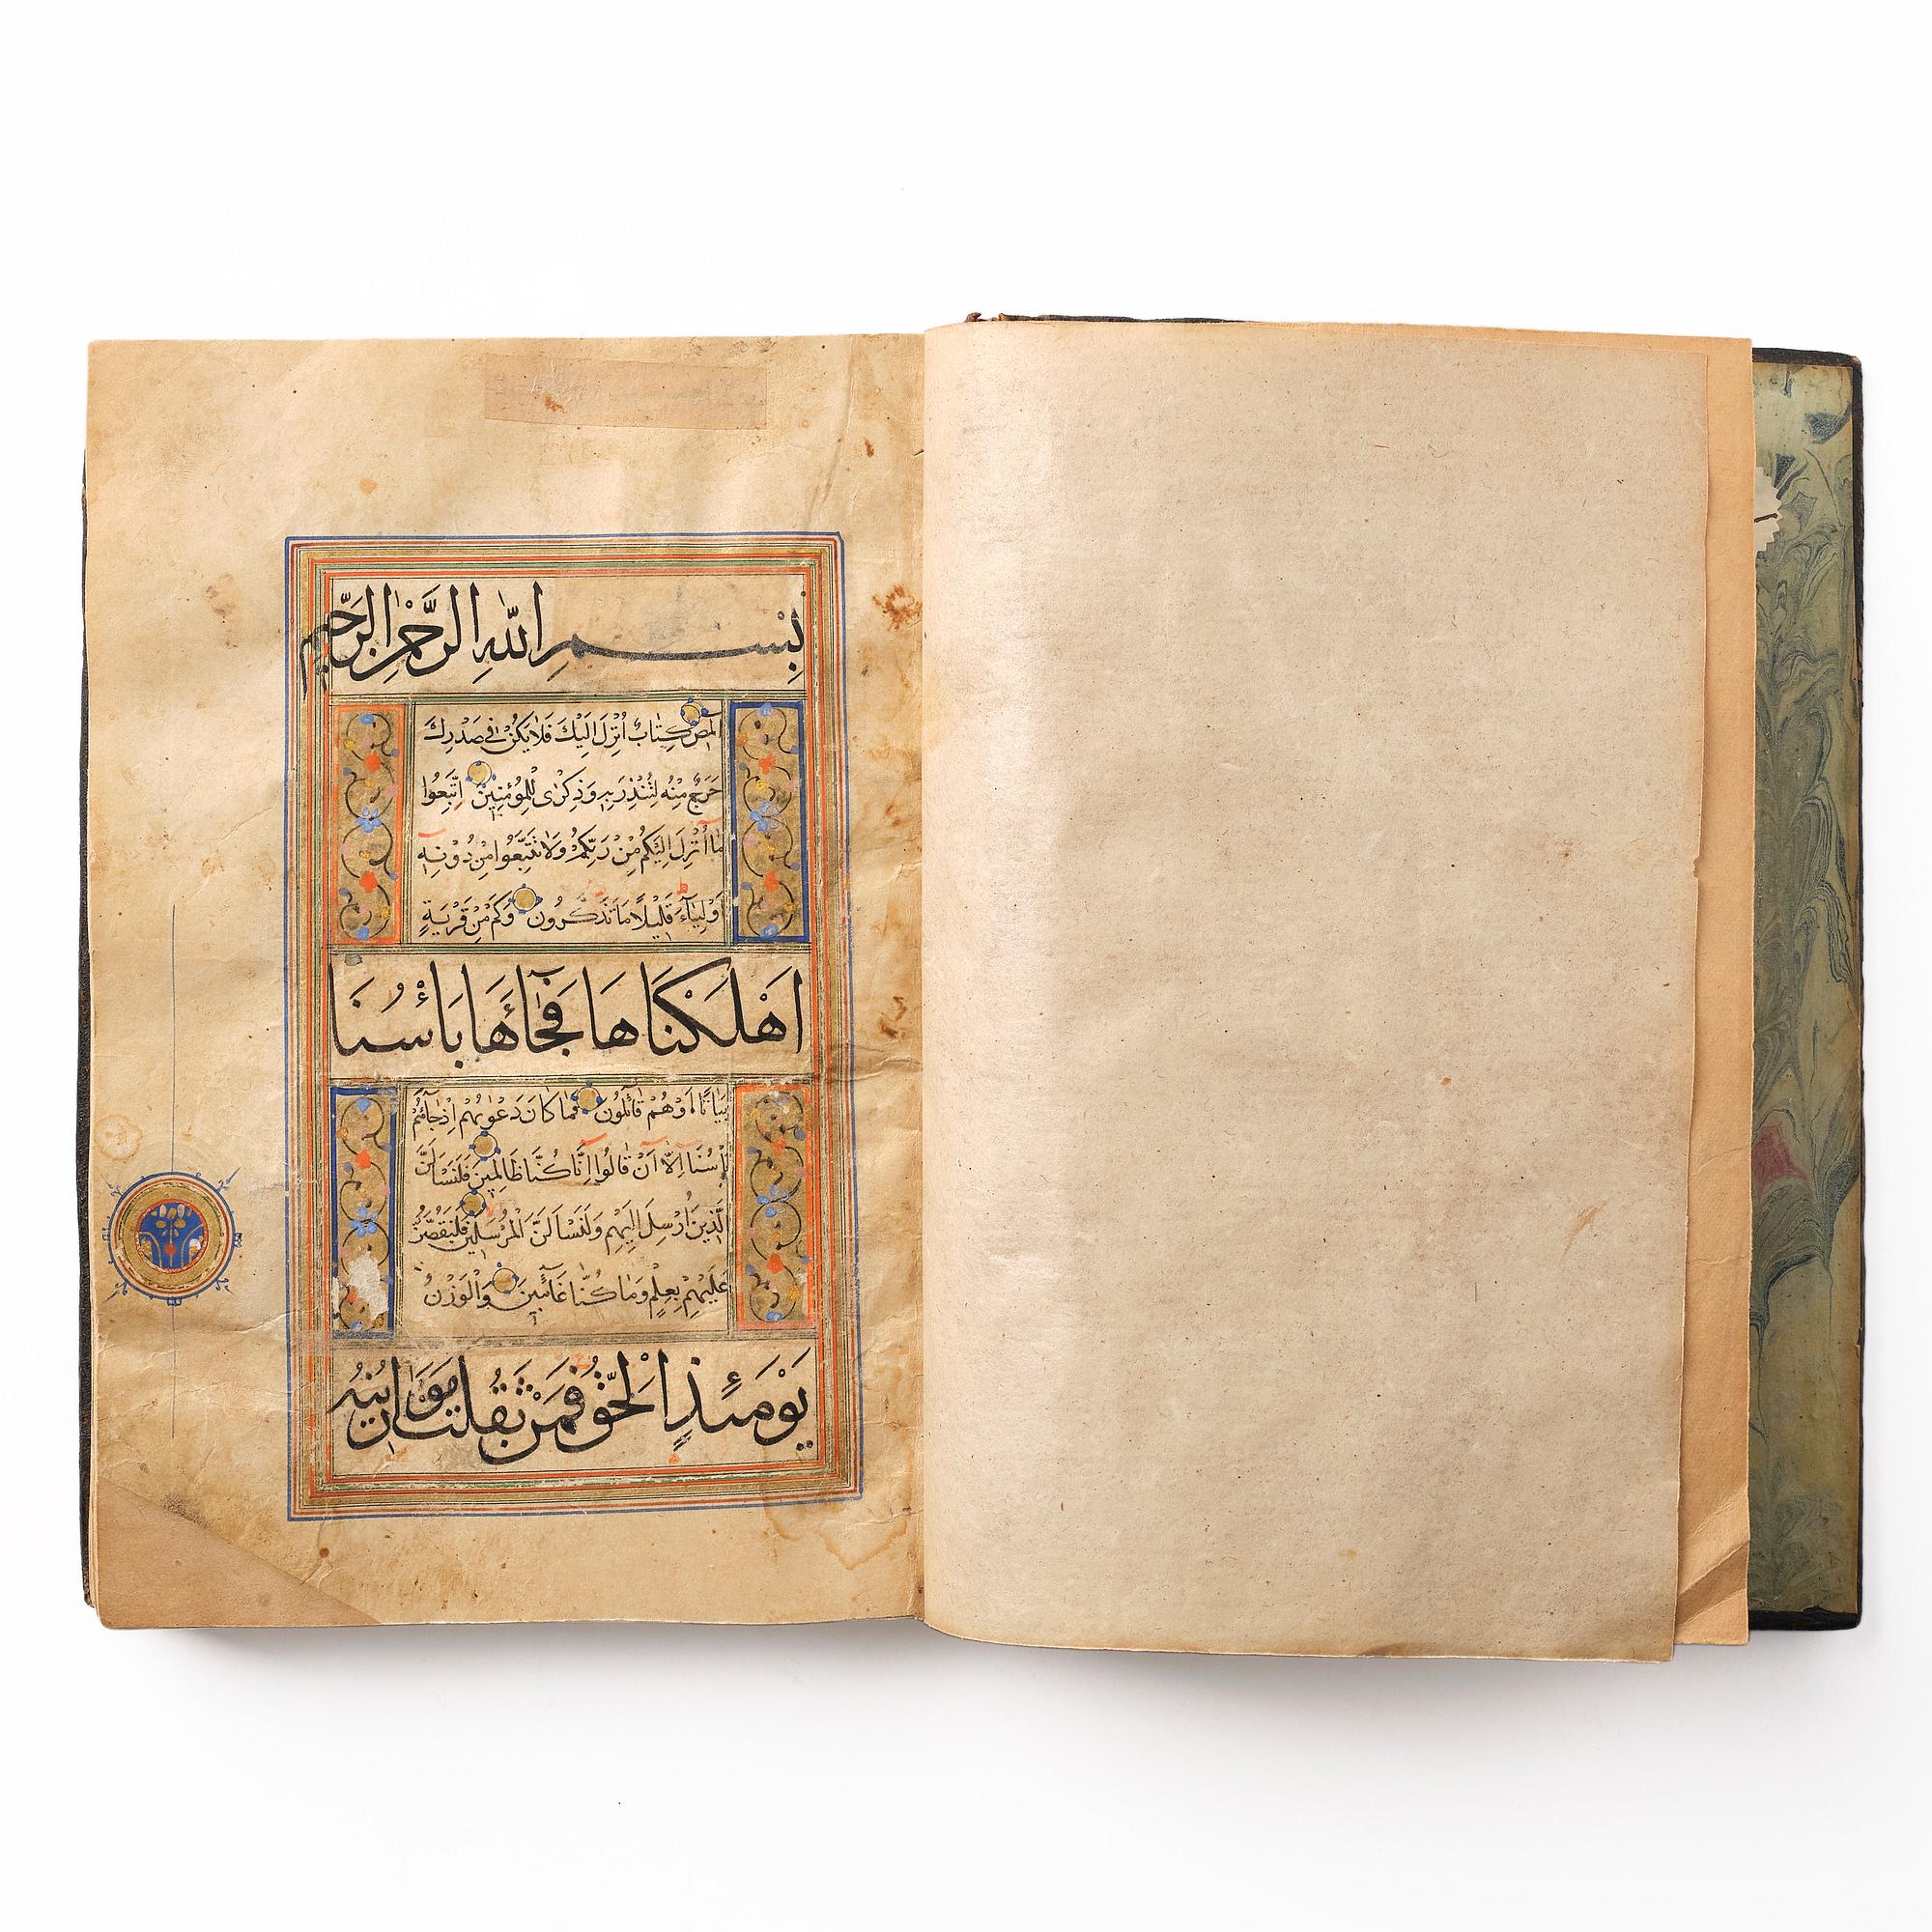 بِسْمِ اللهِ الرَّحْمٰنِ الرَّحِيمِ
الٓمٓصٓ كِتَابٌ اُنْزِلَ اِلَيْكَ فَلَا يَكُنْ فِي صَدْرِكَ
حَرَجٌ مِنْهُ لِتُنْذِرَ بِهِ وَذِكْرٰى لِلْمُؤْمِنِينَ اِتَّبِعُوا
مٰا اُنْزِلَ اِلَيْكُمْ مِنْ رَبِّكُمْ وَلَا تَتَّبِعُوا مِنْ دُونِهِ
اَوْلِيَآءَ قَلِيلًا مَا تَذَكَّرُونَ وَكَمْ مِنْ قَرْيَةٍ
اَهْلَكْنَاهَا فَجَآءَهَا بَأْسُنَا
بَيَاتًا اَوْ هُمْ قَآئِلُونَ فَمَا كَانَ دَعْوٰيهُمْ اِذْ جَآءَهُمْ
بَأْسُنَا اِلَّآ اَنْ قَالُوا اِنَّا كُنَّا ظَالِمِينَ فَلَنَسْأَلَنَّ
الَّذِينَ اُرْسِلَ اِلَيْهِمْ وَلَنَسْأَلَنَّ الْمُرْسَلِينَ فَلَنَقُصَّنَّ
عَلَيْهِمْ بِعِلْمٍ وَمَا كُنَّا غَآئِبِينَ وَالْوَزْنُ
يَوْمَئِذٍ الْحَقُّ فَمَنْ ثَقُلَتْ مَوَازِينُهُ